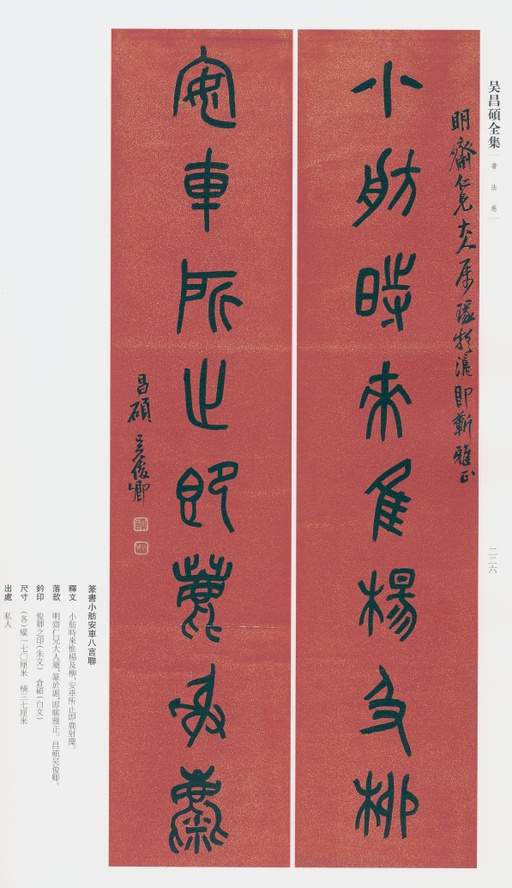 吴昌碩全集
書法卷
二二六
明齋仁兄大人屬篆於滬即蘄雅正
小舫時來隹楊及柳
安車所止即鹿射麋
昌碩吳俊卿
篆書小舫安車八言聯
釋文 小舫時來惟楊及柳,安車所止即鹿射麋。
落款 明齋仁兄大人屬,篆於滬,即蘄雅正。昌碩吳俊卿。
鈐印 俊卿之印(朱文) 倉碩(白文)
尺寸 (各)縱一七〇厘米 橫三七厘米
出處 私人